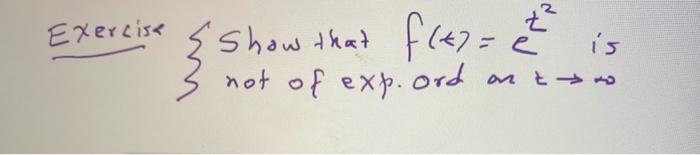 Exercise { Show that f(t) = e^{t^2} is
not of exp. ord as t → ∞